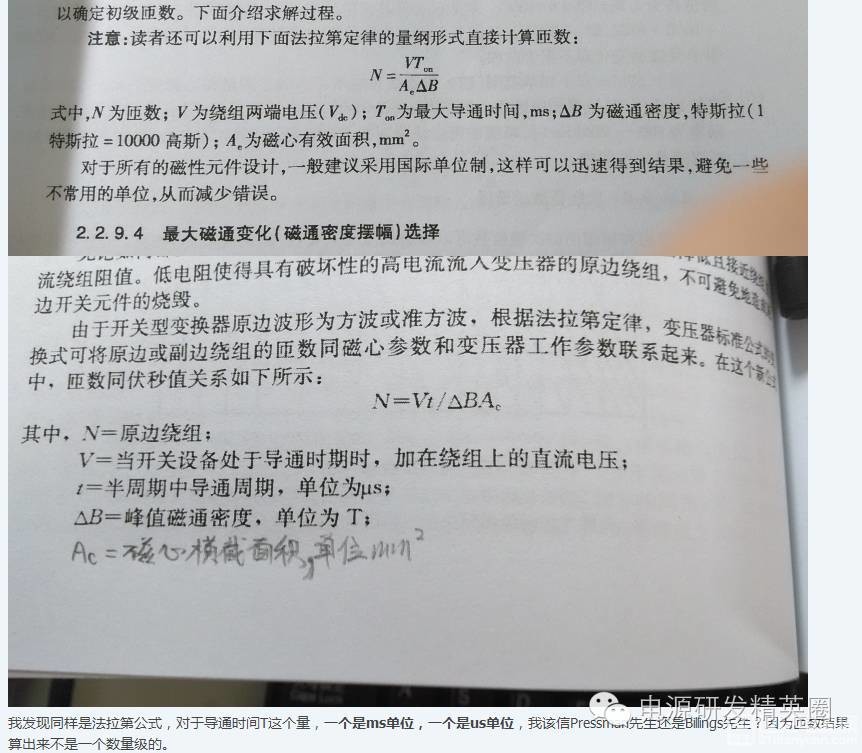 以确定初级匝数。下面介绍求解过程。
注意:读者还可以利用下面法拉第定律的量纲形式直接计算匝数:
N = VT_on / A_eΔB
式中,N 为匝数；V 为绕组两端电压(V_dc)；T_on为最大导通时间,ms;ΔB 为磁通密度,特斯拉(1
特斯拉=10000 高斯)；A_e为磁心有效面积,mm²。
对于所有的磁性元件设计,一般建议采用国际单位制,这样可以迅速得到结果,避免一些
不常用的单位,从而减少错误。
2.2.9.4 最大磁通变化(磁通密度摆幅)选择
流绕组阻值。低电阻使得具有破坏性的高电流流入变压器的原边绕组，不可避免地造成
边开关元件的烧毁。
由于开关型变换器原边波形为方波或准方波，根据法拉第定律，变压器标准公式的
换式可将原边或副边绕组的匝数同磁心参数和变压器工作参数联系起来。在这个新公式
中，匝数同伏秒值关系如下所示：
N=Vt/ΔBA_c
其中，N=原边绕组；
V=当开关设备处于导通时期时，加在绕组上的直流电压；
t=半周期中导通周期，单位为μs；
ΔB=峰值磁通密度，单位为 T；
Ac=磁心横截面积,单位mm²
电源研发精英圈
我发现同样是法拉第公式，对于导通时间T这个量，一个是ms单位，一个是us单位，我该信Pressman先生还是Billings先生？因为匝数结果
算出来不是一个数量级的。